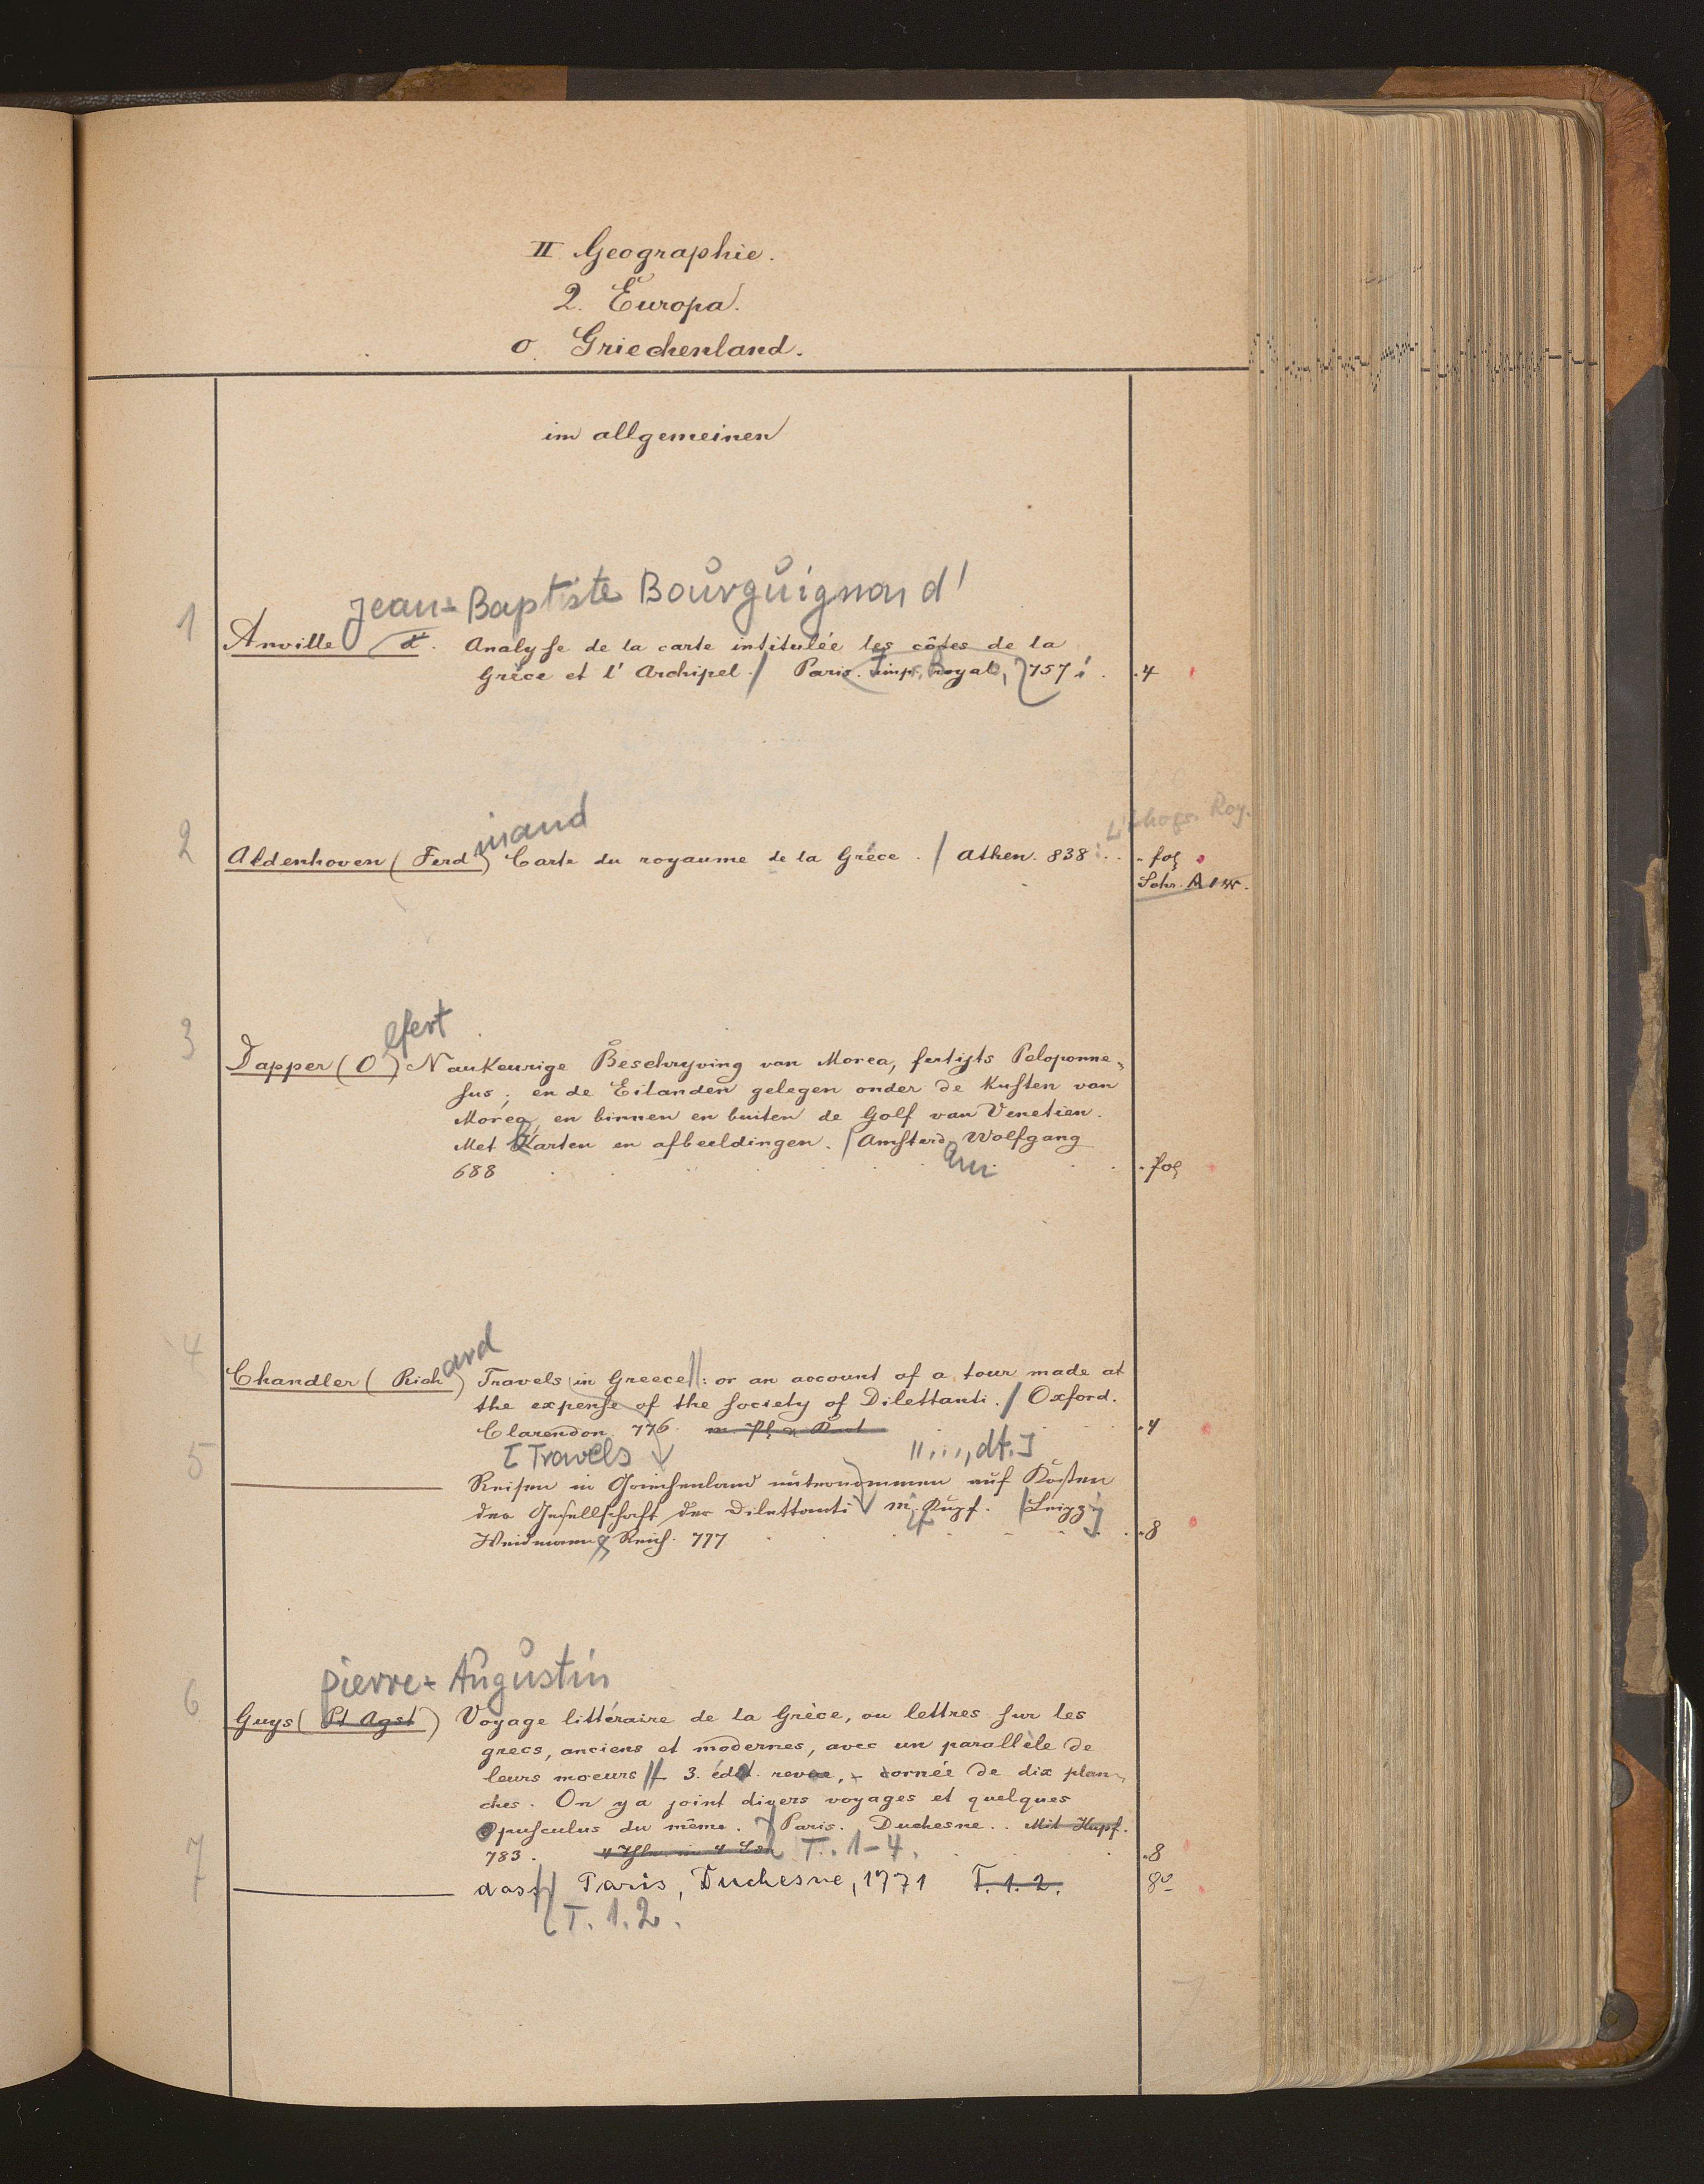 II Geographie.
2. Europa.
o. Griechenland.
im allgemeinen
Jean-Baptiste Bourguignon d'
1 Anville d'. Analyse de la carte intitulée les côtes de la
Gréce et l'Archipel. / Paris. imp. Royal, 757 .4
Lithogr. Roy.
inand
2 Aldenhoven (Ferd) Carte du royaume de la Gréce. / Athen. 838 . . . fol
Schr. A
lfert
3 Dapper (O) Naukeurige Beschryving van Morea, fertijts Peloponne„
sus; en de Eilanden gelegen onder de Kusten van
Morea, en binnen en buiten de Golf van Venetien.
Met Karten en afbeeldingen. / Amsterd. Wolfgang
688 . fol
ard
4 Chandler (Rich) Travels in Greece //: or an account of a tour made at
the expense of the society of Dilettanti. / Oxford.
Clarendon. 776. .4
[Travels ||..., dt.]
5 Reisen in Griechenland unternommen auf Kosten
der Gesellschaft der Dilettanti m. Kupf. / Leipz
Weidmann & Reich. 777 .8
Pierre-Augustin
6 Guys (Pt Agst) Voyage littéraire de la Grèce, ou lettres sur les
grecs, anciens et modernes, avec un parallèle de
leurs moeurs // 3. édit. revue, ornée de dix plan„
ches. On y a joint divers voyages et quelques
opusculus du même. / Paris. Duchesne. . Mit Kupf.
783. T. 1-4. .8
7 dass // Paris, Duchesne, 1771 T. 1. 2. 8º
T. 1. 2.